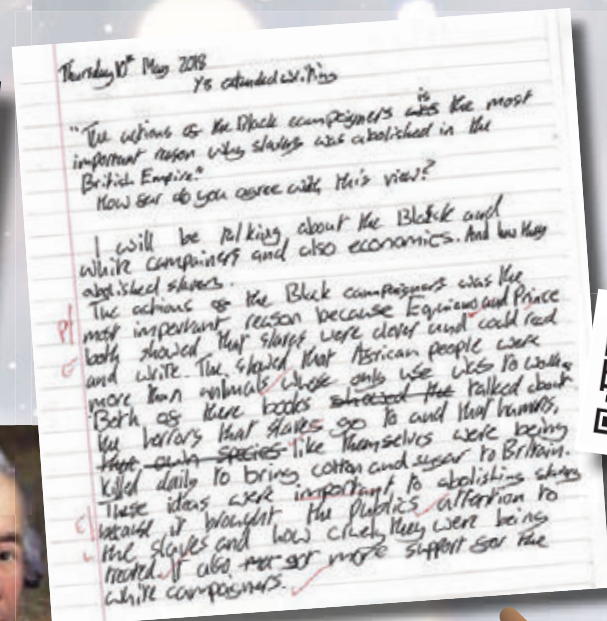 Thursday 10th May 2018
Y8 extended writing
"The actions of the Black campaigners is the most
important reason why slavery was abolished in the
British Empire."
How far do you agree with this view?
I will be talking about the Black and
white campainers and also economics. And how they
abolished slavery.
The actions of the Black campaigners was the
most important reason because Equiano and Prince
both showed that slaves were clever and could read
and write. The showed that African people were
more than animals whose only use was to work.
Both of there books showed the talked about
the horrors that slaves go to and that humans,
that own species like themselves were being
killed daily to bring cotton and sugar to Britain.
These ideas were important to abolishing slavery
because it brought the publics attention to
the slaves and how cruely they were being
treated. It also got more support for the
white campaigners.